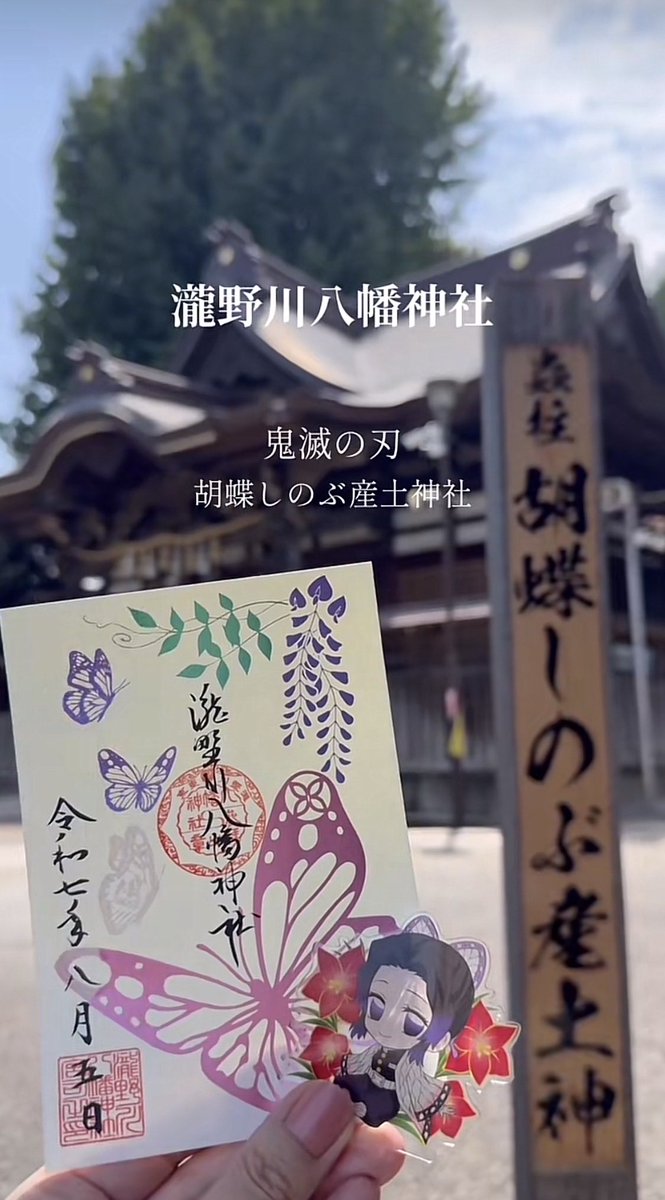 瀧野川八幡神社
鬼滅の刃
胡蝶しのぶ産土神社
蟲柱 胡蝶しのぶ産土神
瀧野川八幡神社
令和七年八月五日